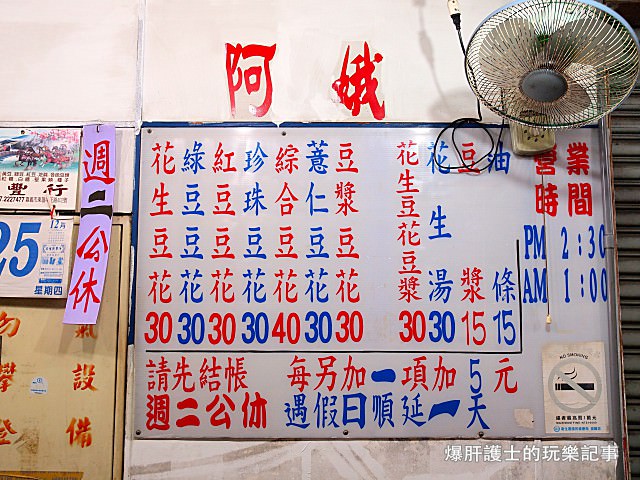 阿娥
花生豆花 30
綠豆豆花 30
紅豆豆花 30
珍珠豆花 30
綜合豆花 40
薏仁豆花 30
豆漿豆花 30
花生豆花豆漿 30
花生湯 30
豆漿 15
油條 15
營業時間
PM 2:30
AM 1:00
請先結帳 每另加一項加5元
週二公休 遇假日順延一天
週二公休
豐行
2227477
25
12月
星期四
NO SMOKING
氣設備
爆肝護士的玩樂記事